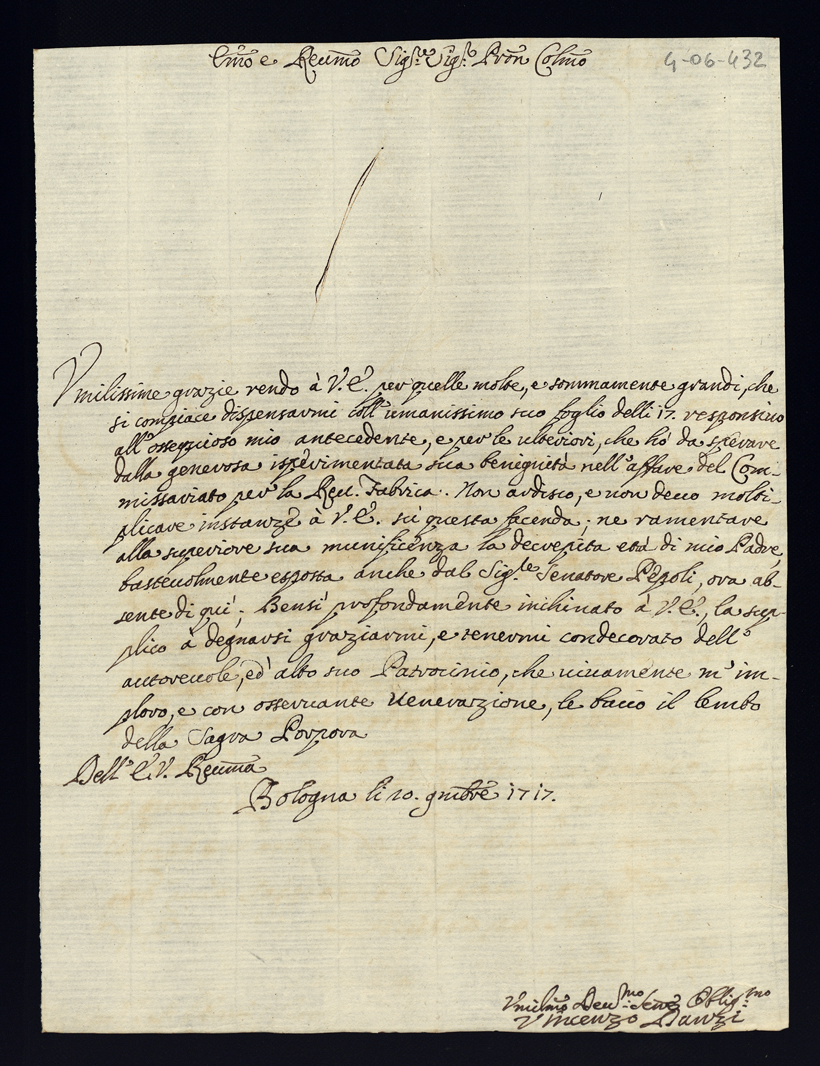 Emõ e Reumõ Sig.re Sig.r Prõn Colmõ
4-06-432
Vmilissime grazie rendo à V.E. per quelle molte, e sommamente grandi, che
si compiace dispensarmi coll'umanissimo suo foglio delli 17. responsiuo
all'ossequioso mio antecedente, e per le ulteriori, che hò da sperare
dalla generosa isperimentata sua benignità nell'affare del Com-
missariato per la Reu. Fabrica. Non ardisco, e non deuo molti-
plicare instanze à V.E. sù questa facenda; ne ramentare
alla superiore sua munificenza la decrepita età di mio Padre,
basteuolmente esposta anche dal Sig.re Senatore Pepoli, ora ab-
sente di quì. Bensì profondamente inchinato à V.E., la sup-
plico à degnarsi graziarmi, e tenermi condecorato dell'
autoreuole, ed'alto suo Patrocinio, che uiuamente m'im-
ploro, e con osseruante Uenerazione, le bacio il lembo
della Sagra Porpora
Dell'E.V. Reumã
Bologna li 20. gmbrẽ 1717.
Vmilmõ Deu.mo Seruẽ Oblig.mo
Vincenzo